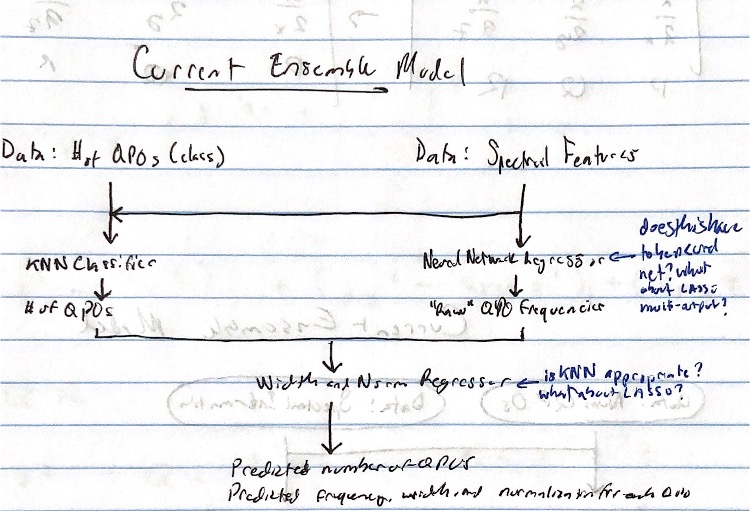 Current Ensemble Model
Data: # of QPOs (class)
Data: Spectral Features
KNN Classifier
Neural Network Regressor
does this have
to be neural
net? what
about LASSO
multi-output?
# of QPOs
"Raw" QPO Frequencies
Width and Norm Regressor
is KNN appropriate?
what about LASSO?
Predicted number of QPOs
Predicted frequency, width, and normalization for each QPO